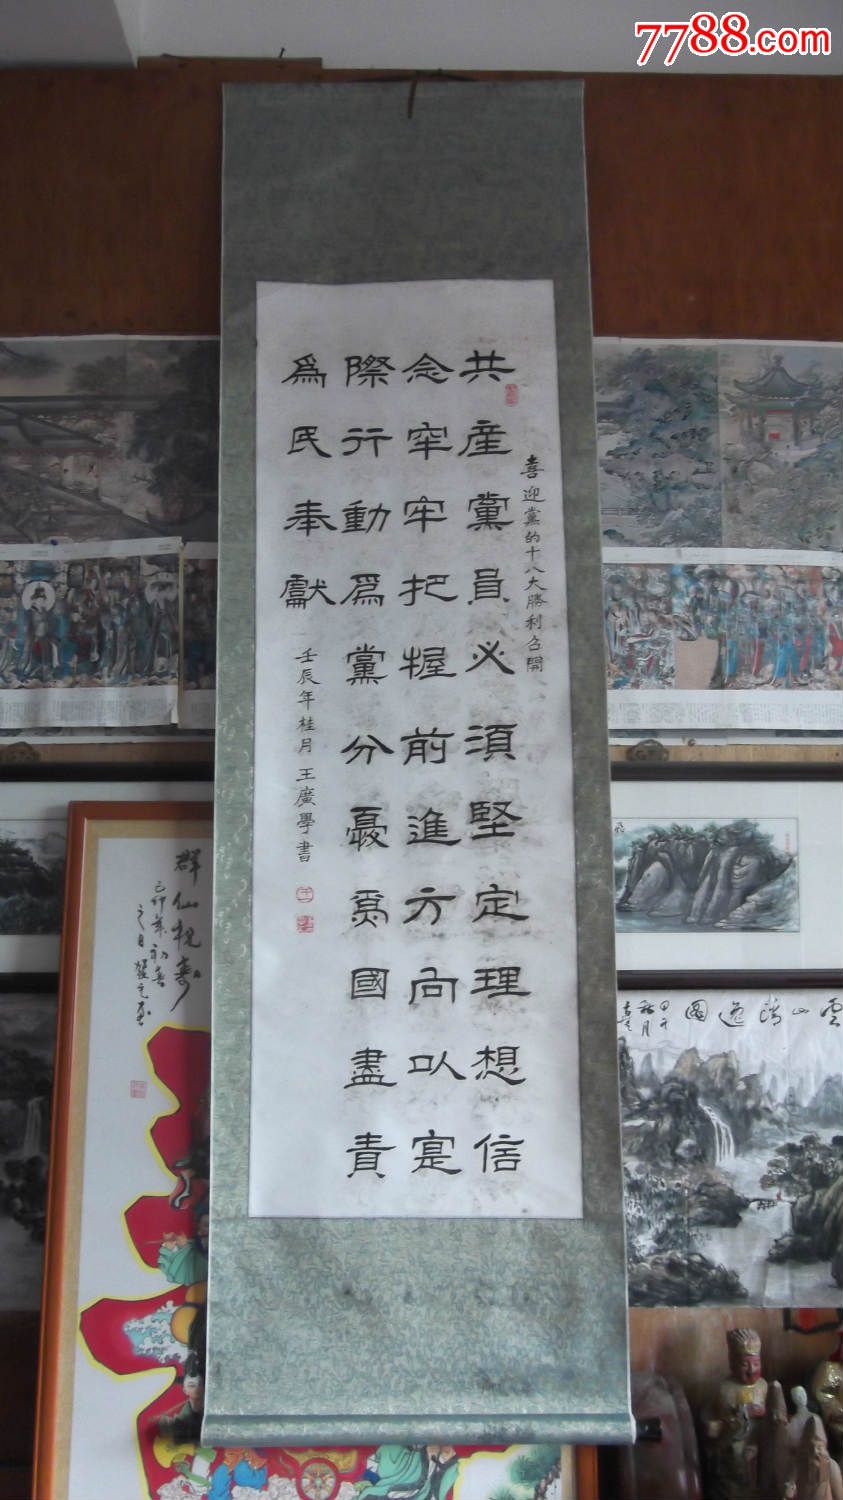 7788.com
喜迎黨的十八大勝利召開
共產黨員必須堅定理想信
念牢牢把握前進方向以寔
際行動爲黨分憂爲國盡責
爲民奉獻
壬辰年桂月王廣學書
群仙祝壽
己卯年初春
雲山清逸圖